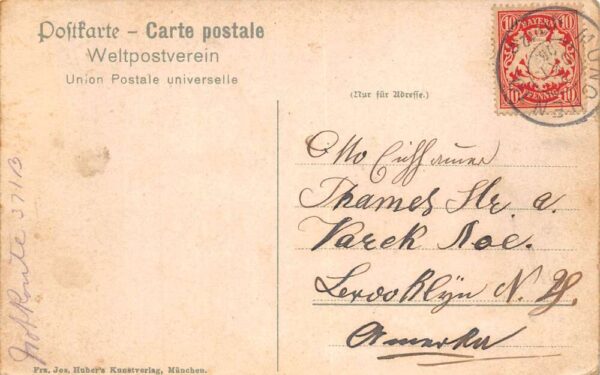 Postkarte – Carte postale
Weltpostverein
Union Postale universelle
(Nur für Adresse.)
BAYERN
10 10
10 PFENNIG 10
MÜNC
Otto Eichhauer
Thames Str. a.
Varek Ave.
Brooklÿn N. Y.
Amerka
3713
Frz. Jos. Huber's Kunstverlag, München.